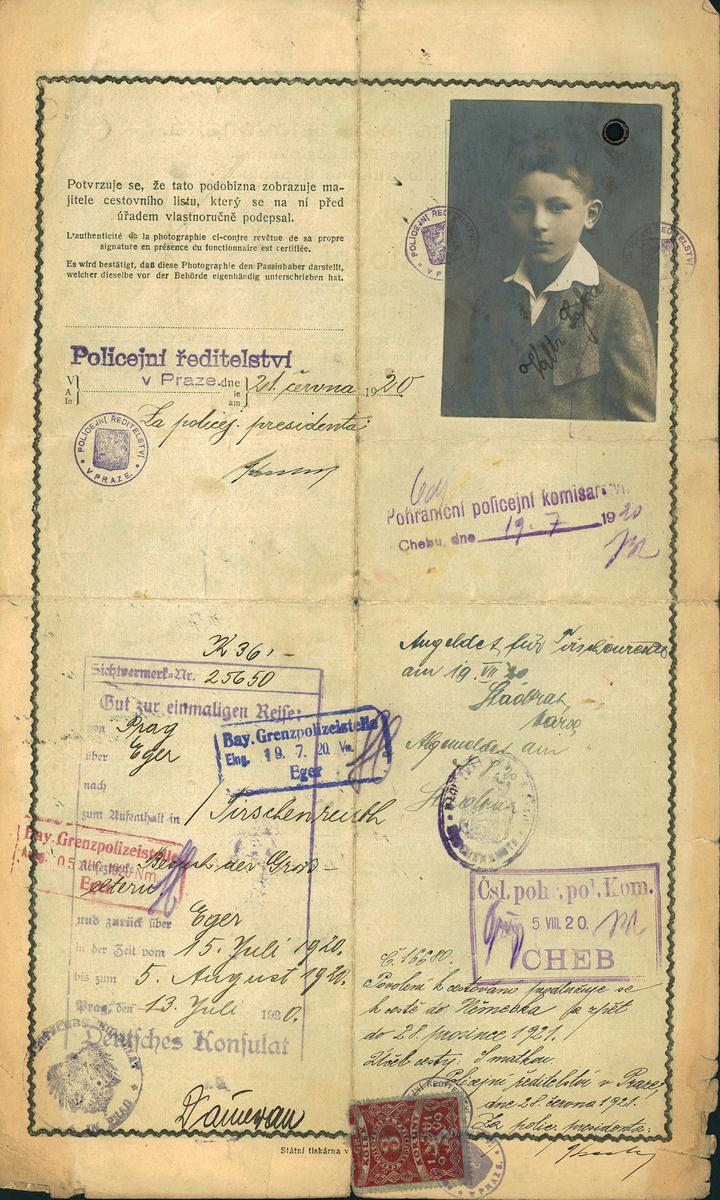 Potvrzuje se, že tato podobizna zobrazuje ma-
jitele cestovního listu, který se na ní před
úřadem vlastnoručně podepsal.
L'authenticité de la photographie ci-contre revêtue de sa propre
signature en présence du fonctionnaire est certifiée.
Es wird bestätigt, daß diese Photographie den Passinhaber darstellt,
welcher dieselbe vor der Behörde eigenhändig unterschrieben hat.
Policejní ředitelství
v Praze. dne
V
A
In
le
am
21. června 1920
Za policej. presidenta:
POLICEJNÍ ŘEDITELSTVÍ
V PRAZE.
POLICEJNÍ ŘEDITELSTVÍ
V P
Pohraniční policejní komisar
Chebu, dne 19. 7 1920
K 36.-
Sichtvermerk-Nr. 25650
Gut zur einmaligen Reise:
von Prag
über Eger
nach
zum Aufenthalt in Tirschenreuth
Besuch der Groß-
eltern
und zurück über Eger
in der Zeit vom 15. Juli 1920.
bis zum 5. August 1920.
Prag, den 13. Juli 1920.
Deutsches Konsulat
Bay. Grenzpolizeistelle
Eing. 19. 7. 20. Vm.
Eger
Bay. Grenzpolizeistelle
05 Aug. 1920 Nm.
Angeldet für Tirschenreuth
am 19. VII 20
Stadtrat
Abgemeldet am
8. 20
Čsl. poh. pol. Kom.
5 VIII. 20.
CHEB
Č. 16680.
Povolení k cestování prodlužuje se
k cestě do Německa a zpět
do 28. prosince 1921.
Účel cesty: S matkou.
Policejní ředitelství v Praze,
dne 28. června 1921.
Za polic. presidenta:
3
Státní tiskárna v